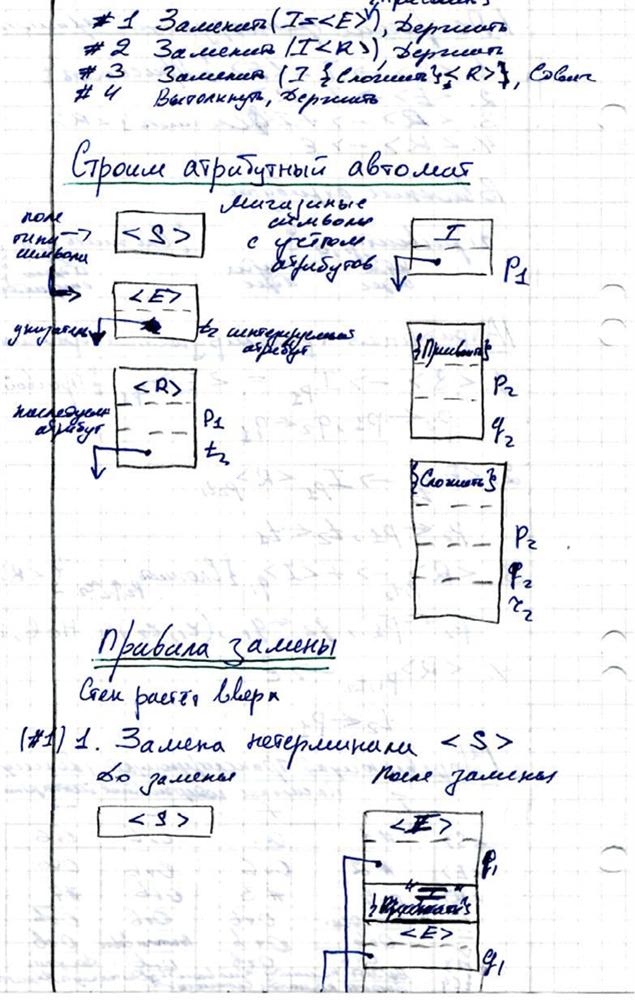 #1 Заменить (I=<E>), Держать
#2 Заменить (I<R>), Держать
#3 Заменить (I{Сложить}<R>), Сдвиг
#4 Вытолкнуть, Держать
Строим атрибутный автомат
поле типа символа
<S>
Магазинные символы с учётом атрибутов
I
P1
<E>
указатель
t2 синтезируемый атрибут
{Присвоить}
P2
q2
<R>
наследуемый атрибут
P1
t2
{Сложить}
P2
q2
r2
Правила замены
Стек растёт вверх
(#1) 1. Замена нетерминала <S>
До замены
После замены
<S>
P1
{Присвоить}
<E>
q1